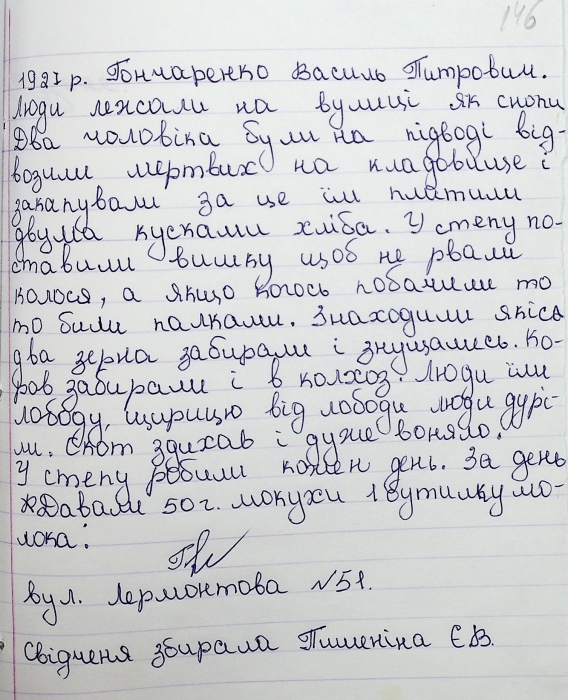 146
1927 р. Гончаренко Василь Питрович.
Люди лежали на вулиці як снопи
Два чоловіка були на підводі від-
возили мертвих на кладовище і
закапували за це їм платили
двума кусками хліба. У степу по-
ставили вишку щоб не рвали
колося, а якщо когось побачили то
то били палками. Знаходили якісь
два зерна забирали і знущались. Ко-
ров забирали і в колхоз. Люди їли
лободу, щирицю від лободи люди дурі-
ли. Скот здихав і дуже воняло.
У степу робили кожен день. За день
Давали 50 г. мокухи 1 бутилку мо-
лока.
вул. Лермонтова №51.
Свідченя збирала Пишеніна Є.В.